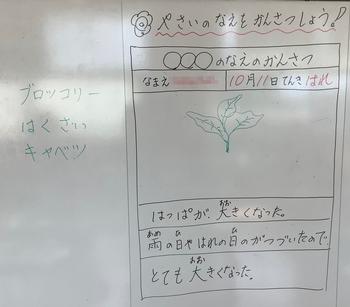 やさいのなえをかんさつしよう!
〇〇〇のなえのかんさつ
なまえ 10月11日 てんき はれ
ブロッコリー
はくさい
キャベツ
はっぱが、大きくなった。
おお
雨の日や はれの日のがつづいたので
あめ ひ ひ
とても 大きくなった。
おお